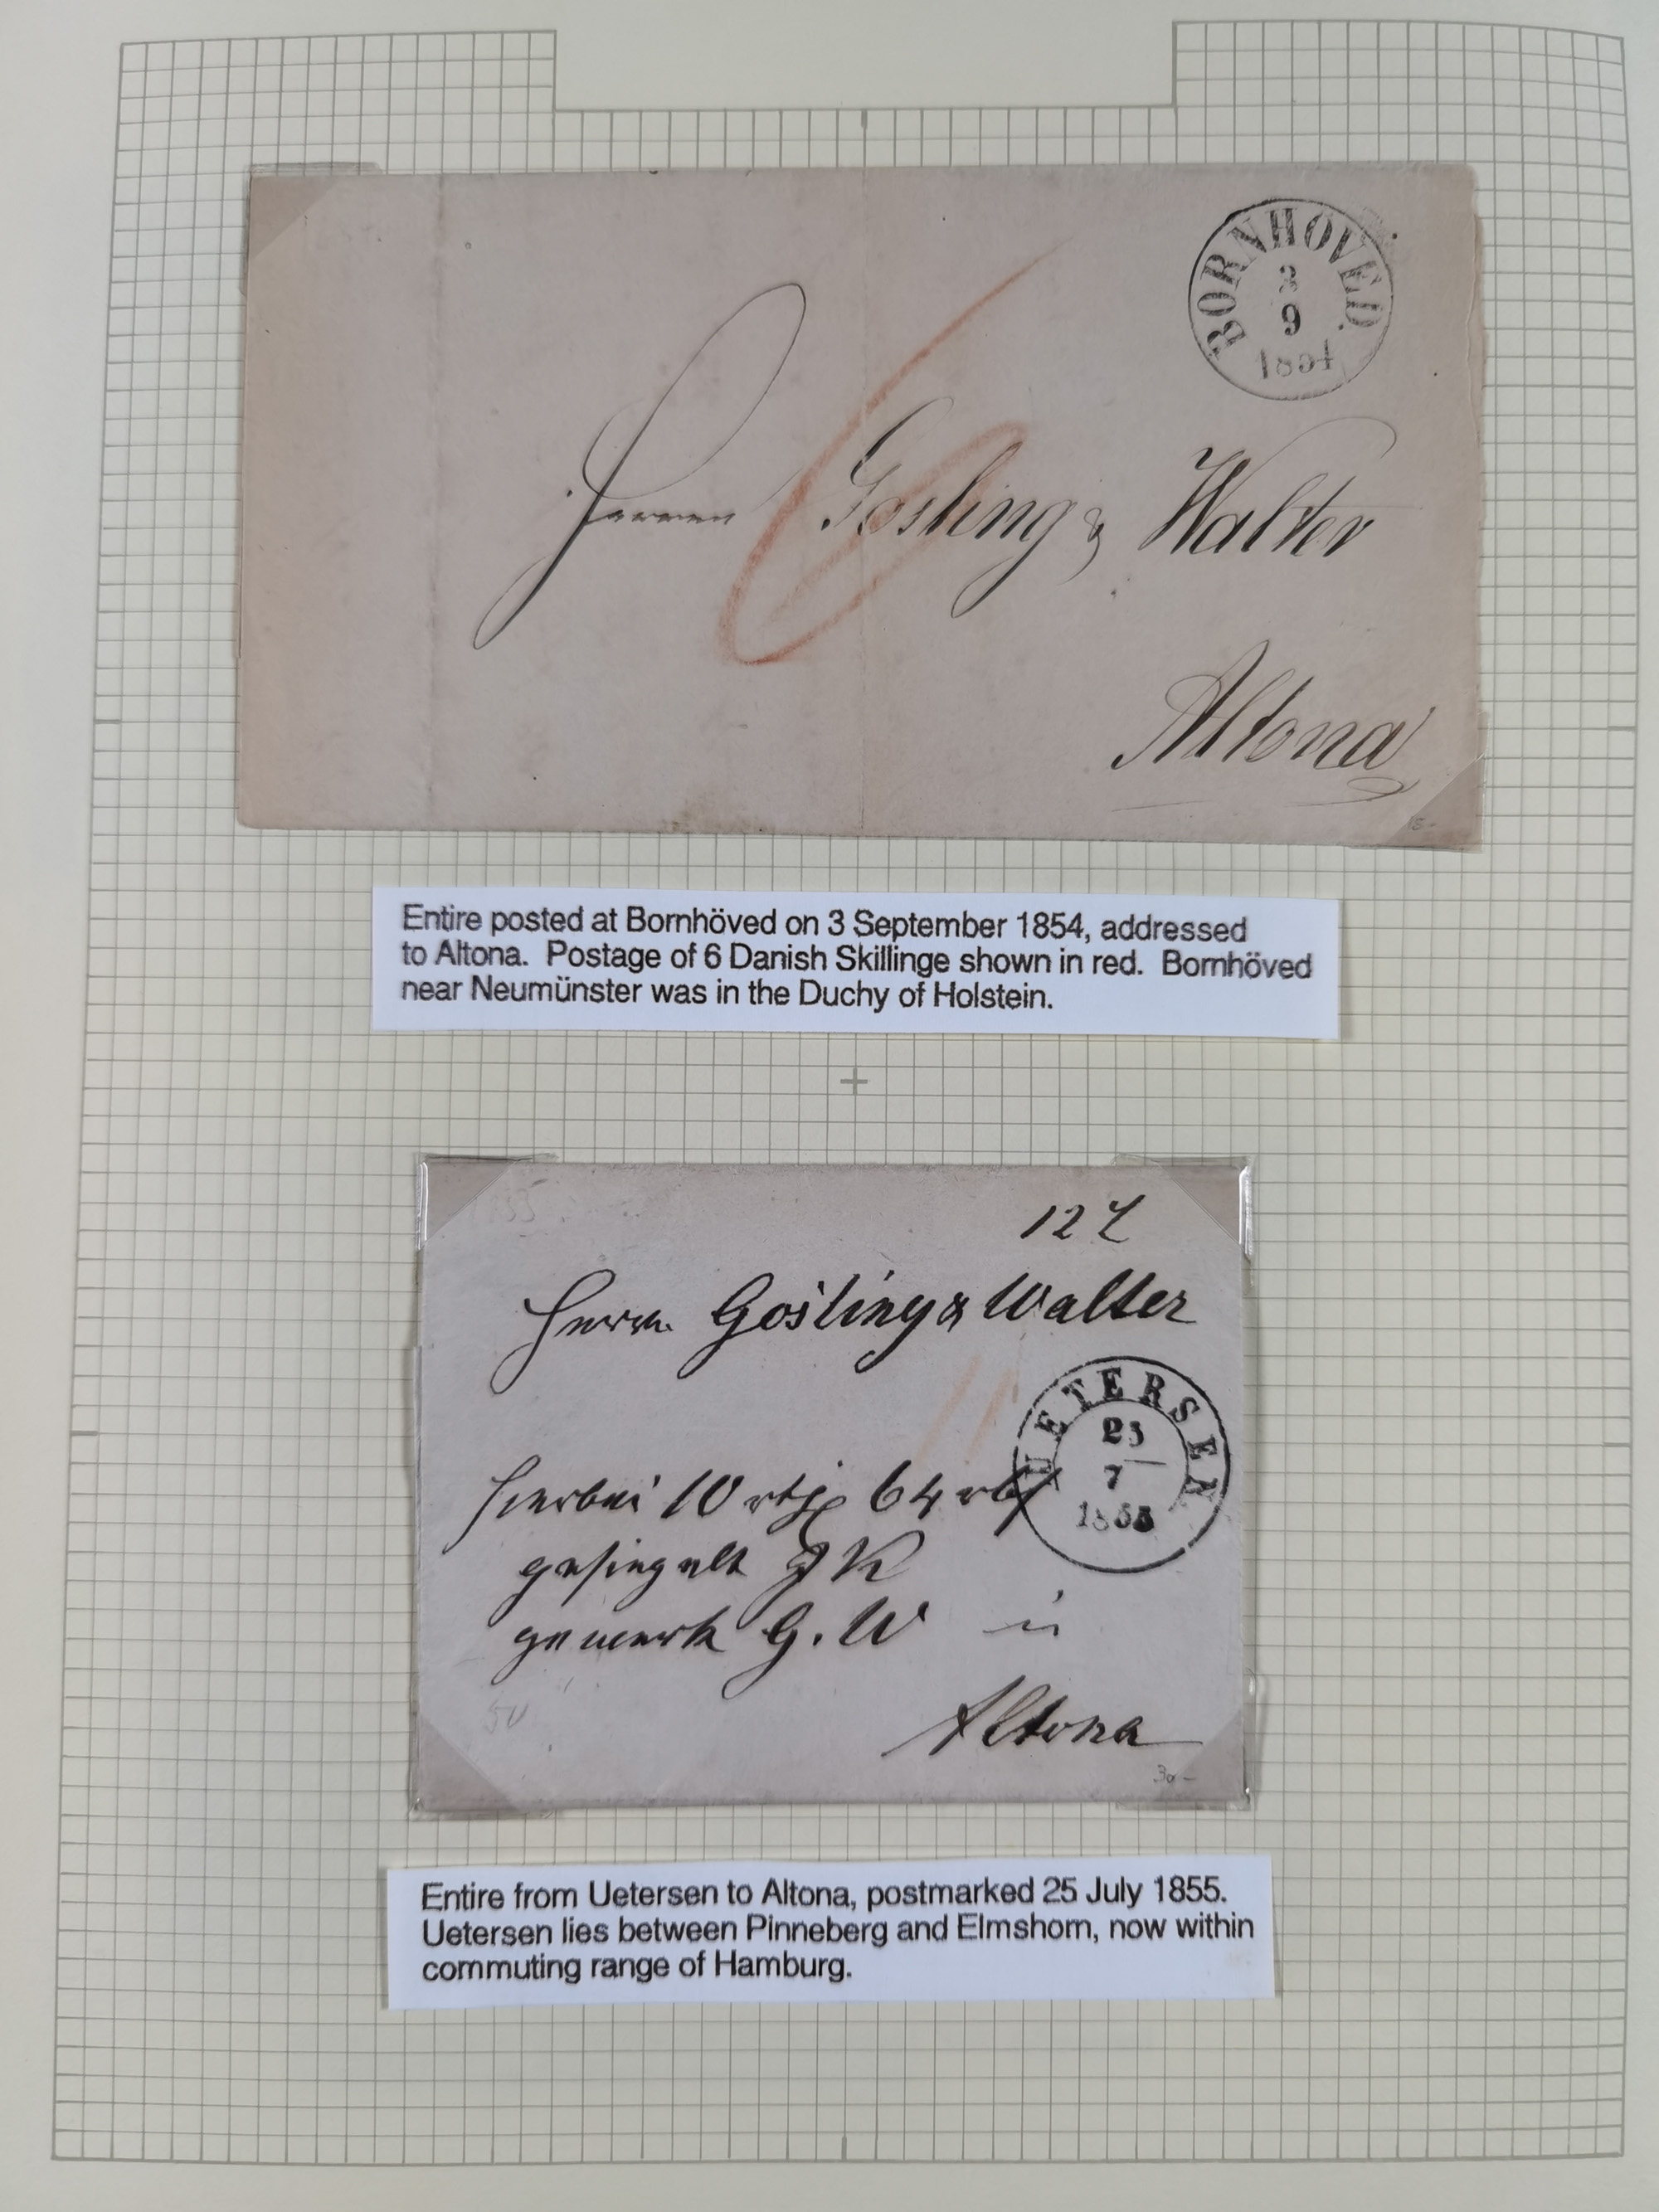 BORNHÖVED.
3
9
1854
Herren Gosling & Walter
Altona
15-
Entire posted at Bornhöved on 3 September 1854, addressed
to Altona. Postage of 6 Danish Skillinge shown in red. Bornhöved
near Neumünster was in the Duchy of Holstein.
Herrn Gosling & Walter
UETERSEN
25
7
1855
hierbei 10 64
gesiegelt
gemerk G. W in
Altona
50
30-
Entire from Uetersen to Altona, postmarked 25 July 1855.
Uetersen lies between Pinneberg and Elmshorn, now within
commuting range of Hamburg.